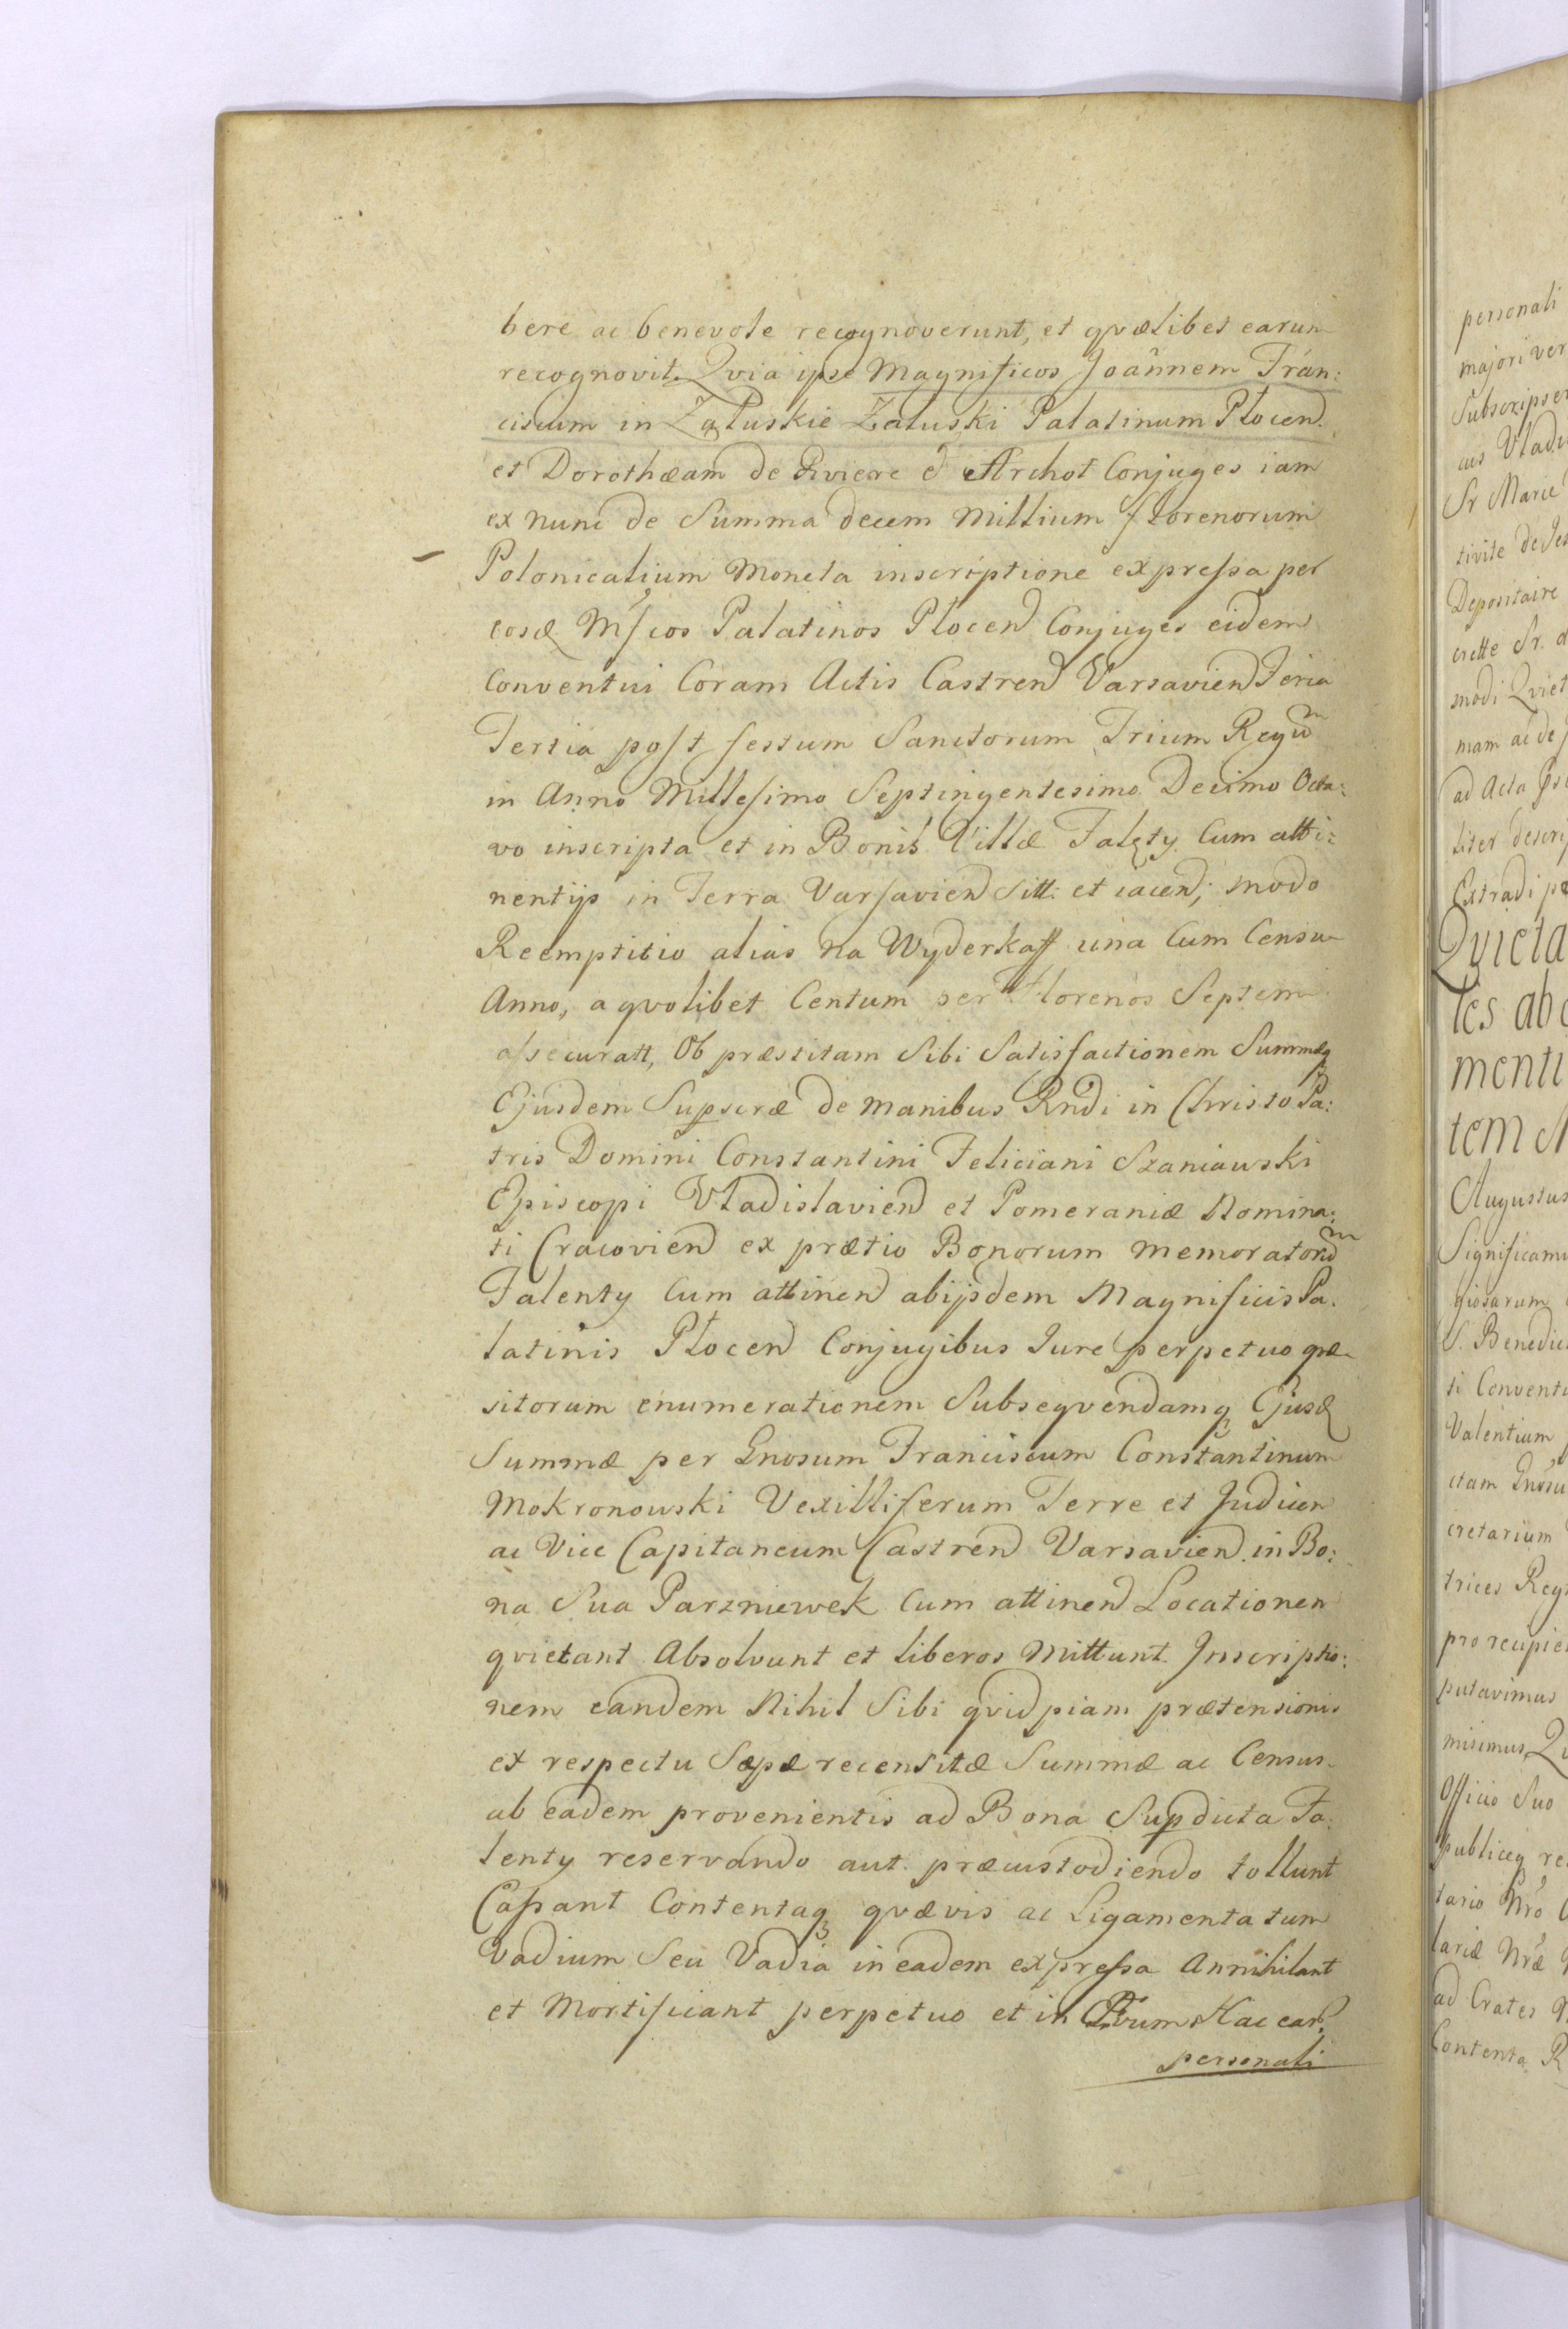 bere ac benevole recognoverunt, et qvælibet earum
recognovit. Qvia ipse Magnificos Joannem Fran:
ciscum in Załuskie Załuski Palatinum Plocen̄.
et Dorothæam de Riviere d Archot Conjuges iam
ex nunc de Summa decem Millium florenorum
Polonicalium Moneta inscriptione expressa per
eosd Mfcos Palatinos Plocen̄ Conjuges eidem
Conventui Coram Actis Castren̄ Varsavien̄ Feria
Tertia post festum Sanctorum Trium Regum
in Anno Millesimo Septingentesimo Decimo Octa:
vo inscripta et in Bonis Villæ Falęty Cum atti:
nentijs in Terra Varsavien̄ Sitt: et iacen̄; modo
Reemptitio alias na Wyderkaff una Cum Censu
Anno, a qvolibet Centum per Florenos Septem
assecuratt, Ob præstitam Sibi Satisfactionem Summæ
Ejusdem Supscræ de manibus Rndi in Christo Pa:
tris Domini Constantini Feliciani Szaniawski
Episcopi Vladislavien̄ et Pomeraniæ Nomina:
ti Cracovien̄ ex prætio Bonorum memoratorum
Falenty Cum attinen̄ abijsdem Magnificis Pa:
latinis Plocen̄ Conjugibus Jure perpetuo qvæ
sitorum enumerationem Subseqvendamq Ejusd
Summæ per Gnosum Franciscum Constantinum
Mokronowski Vexilliferum Terre et Judicen
ac Vice Capitaneum Castren̄ Varsavien̄. in Bo:
na Sua Parzniewek Cum attinen̄ Locationem
qvietant Absolvunt et liberos Mittunt. Inscriptio:
nem eandem Nihil Sibi qvidpiam prætensionis
ex respectu Sæpæ recensitæ Summæ ac Census
ab eadem provenientis ad Bona Supdicta Fa:
lenty reservando aut. præcustodiendo tollunt
Cassant Contentaq qvævis ac Ligamenta tum
Vadium Seu Vadia in eadem expressa Annihilant
et Mortificant perpetuo et in Ævum Hac ear.
personali
personali
majori ver
Subscripser
cus Vladi
Sr Marie
tivite de Jes
Depositaire
crette Sr. d
modi Qviet
mam ac de
ad Acta
liter descri
Extradi
Qvieta
les ab
menti
tem
Augustus
Significam
giosarum
S. Benedic
ti Convent
Valentium
ctam Gnosu
cretarium
trices Reg
pro recipie
putavimus
misimus, Q
Officio Suo
publiceq re
tario Nro
lariæ Nræ
ad Crates
Contenta R